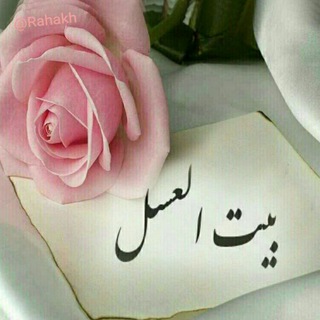 @Rahakh
بیت العسل